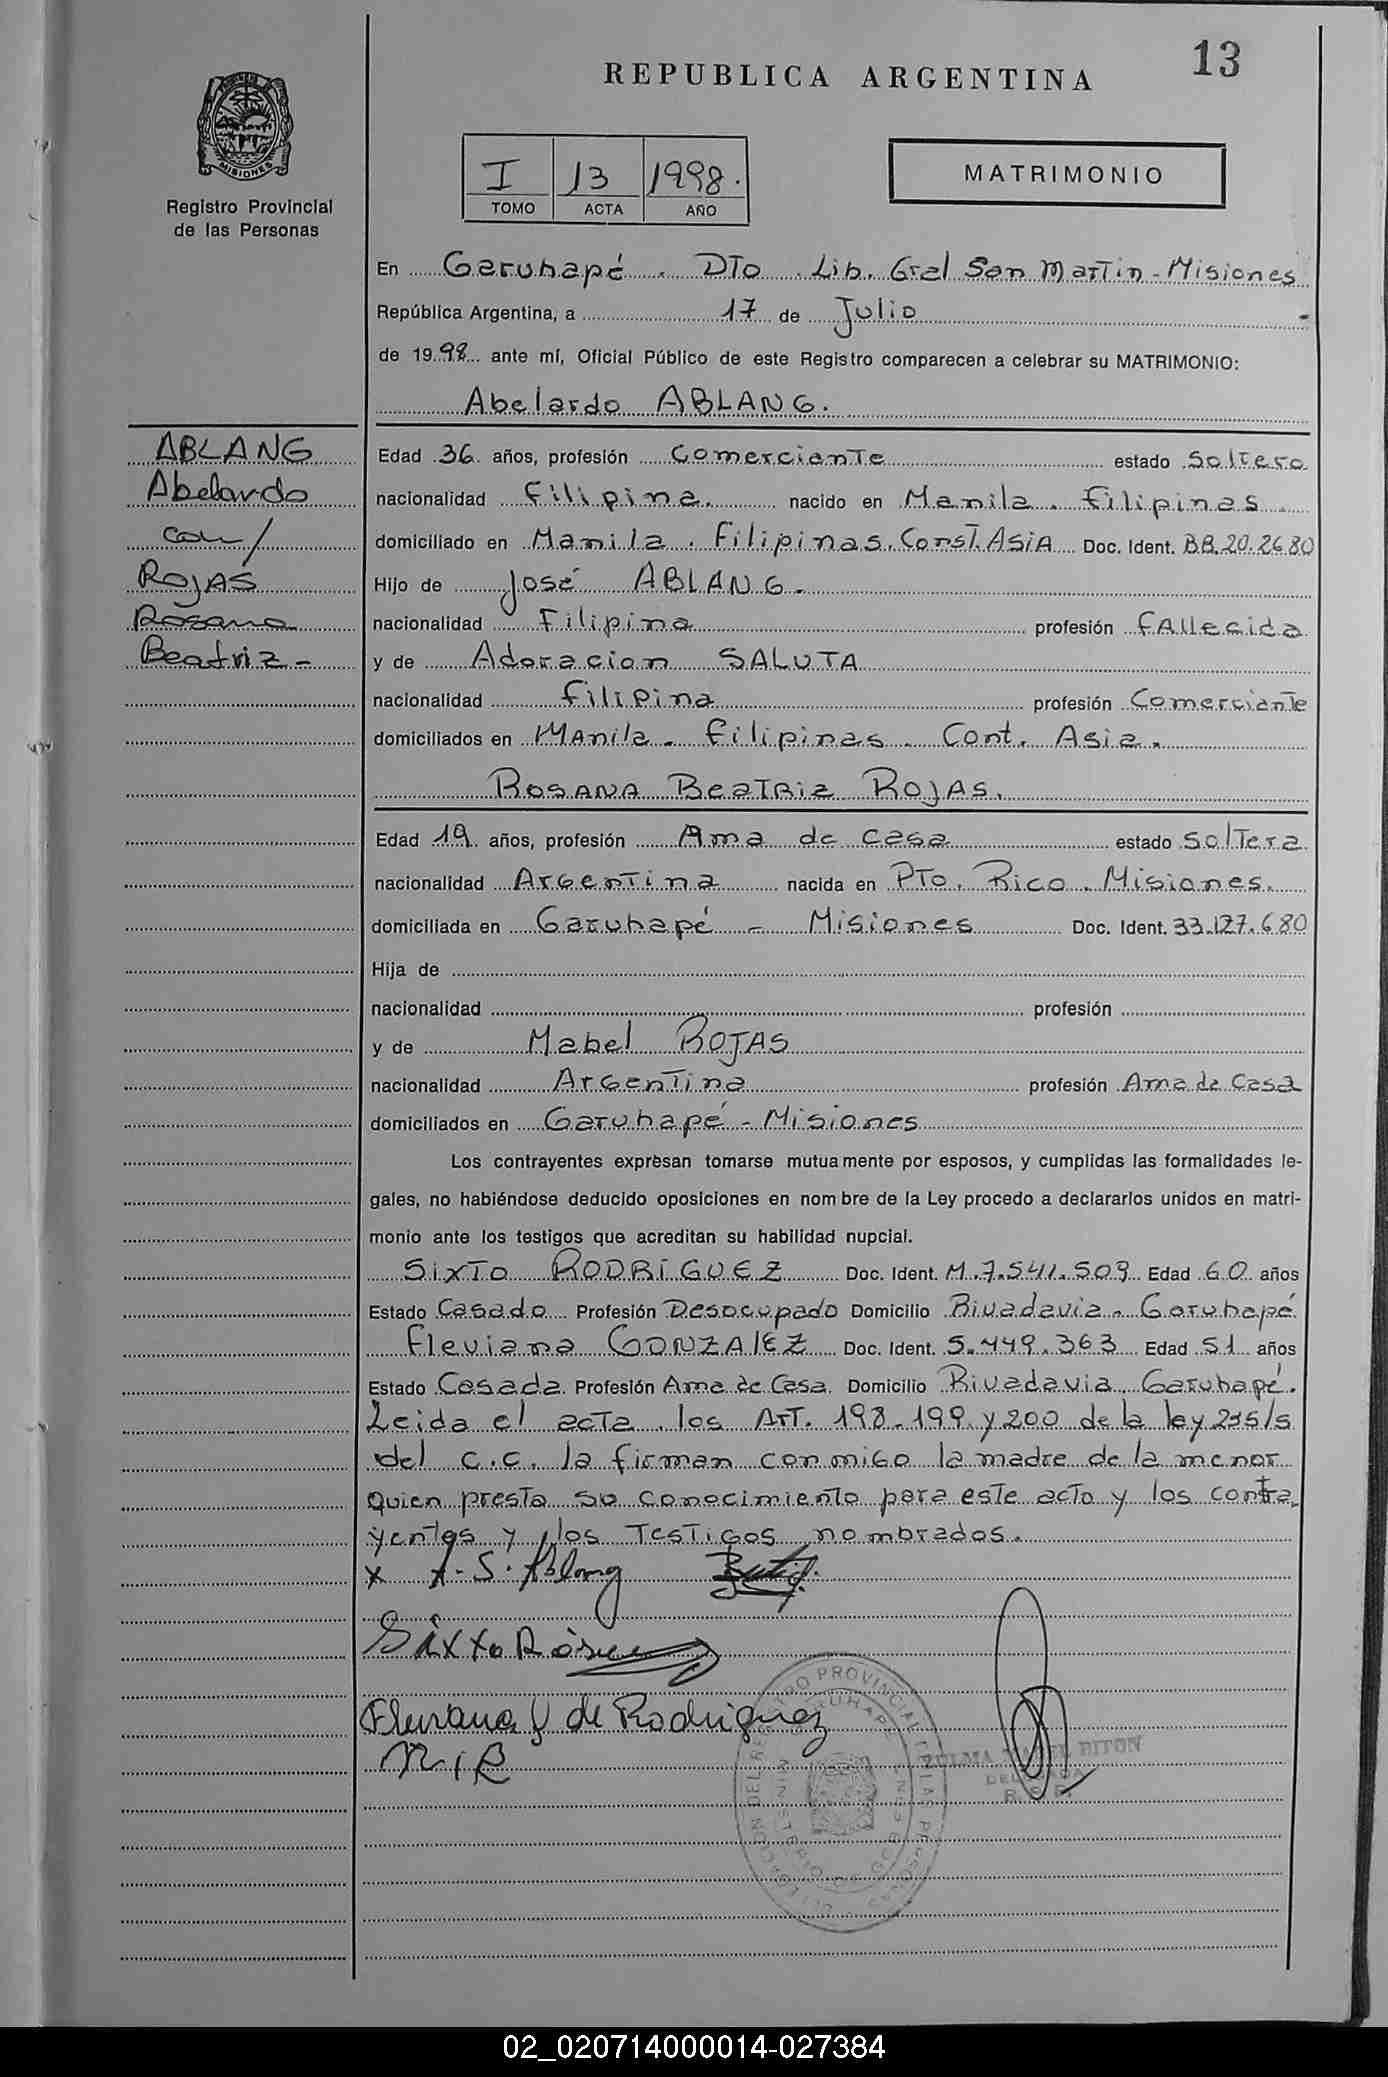 13
REPUBLICA ARGENTINA
MISIONES
Registro Provincial
de las Personas
I 13 1998.
TOMO ACTA AÑO
MATRIMONIO
En Garuhapé. DTo. Lib. Gral San Martin - Misiones
República Argentina, a 17 de Julio -
de 1998 ante mí, Oficial Público de este Registro comparecen a celebrar su MATRIMONIO:
Abelardo ABLANG.
ABLANG
Abelardo
con/
ROJAS
Rosana
Beatriz -
Edad 36 años, profesión Comerciante estado Soltero
nacionalidad Filipina. nacido en Manila. Filipinas.
domiciliado en Manila. Filipinas. Const. ASiA Doc. Ident. BB.20.2680
Hijo de José ABLANG.
nacionalidad Filipina profesión FAllecida
y de Adoracion SALUTA
nacionalidad Filipina profesión Comerciante
domiciliados en Manila. Filipinas. Cont. Asia.
ROSANA BeaTRiz ROJAS.
Edad 19 años, profesión Ama de casa estado Soltera
nacionalidad Argentina nacida en PTo. Rico. Misiones.
domiciliada en Garuhapé - Misiones Doc. Ident. 33.127.680
Hija de
nacionalidad profesión
y de Mabel ROJAS
nacionalidad Argentina profesión Ama de Casa
domiciliados en Garuhapé - Misiones
Los contrayentes expresan tomarse mutuamente por esposos, y cumplidas las formalidades le-
gales, no habiéndose deducido oposiciones en nombre de la Ley procedo a declararlos unidos en matri-
monio ante los testigos que acreditan su habilidad nupcial.
SixTo RODRiGUEZ Doc. Ident. M.7.541.509 Edad 60 años
Estado Casado Profesión Desocupado Domicilio Rivadavia. Garuhapé
Fleviana GONZALEZ Doc. Ident. 5.449.363 Edad 51 años
Estado Casada Profesión Ama de Casa Domicilio Rivadavia. Garuhapé.
Leida el acta, los ArT. 198-199 y 200 de la ley 215/s
del C.C. la firman conmigo la madre de la menor
quien presta su conocimiento para este acto y los contra
yentes y los Testigos nombrados.
x A.S. Ablang
Sixto
Fleviana G de Rodriguez
M.R
ZULMA MABEL BITON
DELEGADA
02_020714000014-027384